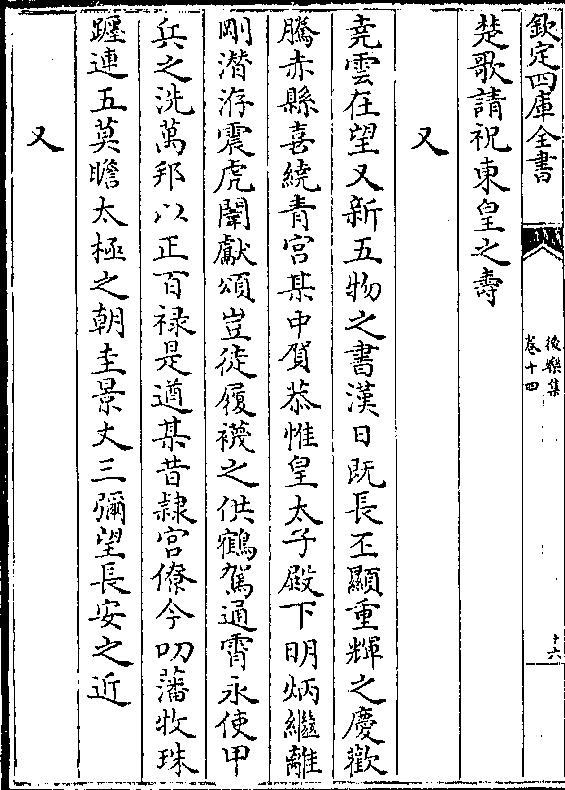 欽定四庫全書
後樂集
卷十四
十六
楚歌請祝東皇之壽
又
堯雲在望又新五物之書漢日既長丕顯重輝之慶歡
騰赤縣喜繞青宮某中賀恭惟皇太子殿下明炳繼離
剛潛洊震虎闈獻頌豈徒履襪之供鶴駕通霄永使甲
兵之洗萬邦以正百祿是遒某昔隷宮僚今叨藩牧珠
躔連五莫瞻太極之朝圭景丈三彌望長安之近
又